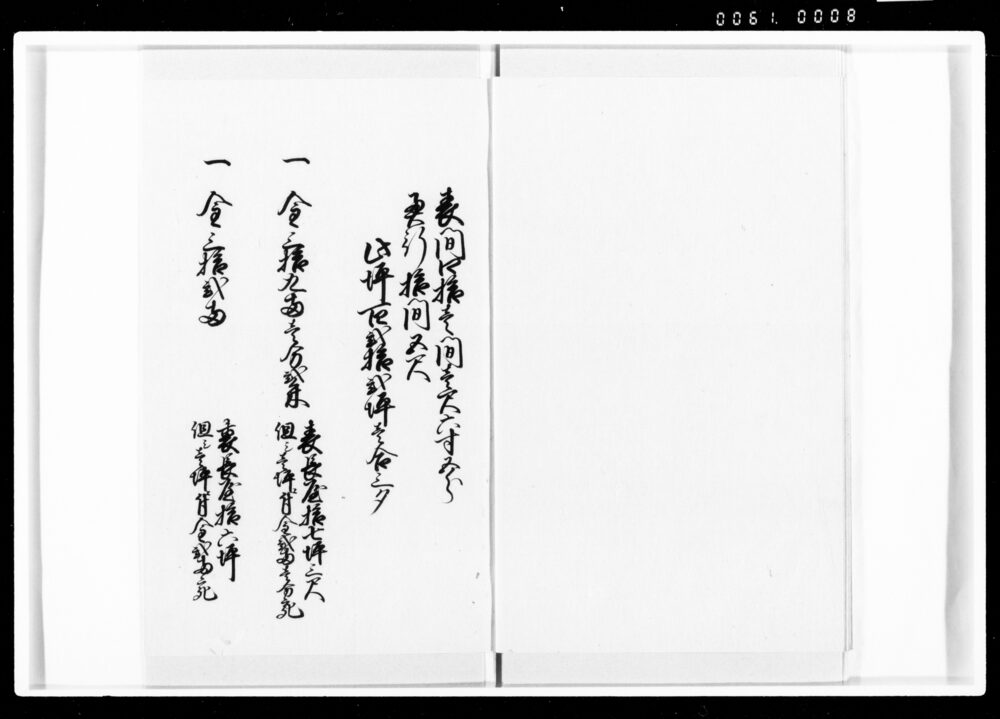 0061. 0008
表間口拾壱間壱尺六寸五分
裏行拾間五尺
此坪百弐拾弐坪壱合三夕
一 金三拾九両壱分弐朱
表長屋拾七坪三尺
但シ壱坪ニ付金弐両壱分宛
一 金三拾弐両
裏長屋拾六坪
但シ壱坪ニ付金弐両宛